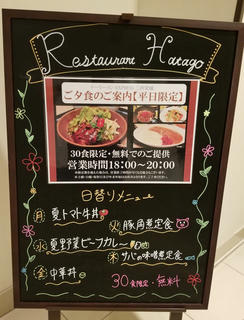 Restaurant Hatago
ご夕食のご案内【平日限定】
30食限定・無料でのご提供
営業時間18:00~20:00
日替りメニュー
月 夏トマト牛丼
火 豚角煮定食
水 夏野菜ビーフカレー
木 サバの味噌煮定食
金 中華丼
30食限定・無料